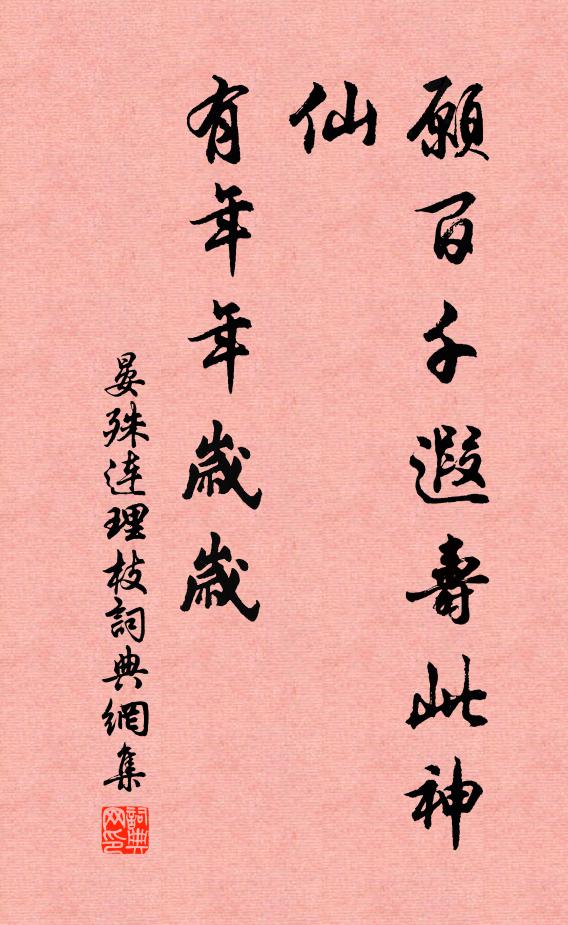 願百千遐壽此神
仙
有年年歲歲
晏殊連理枝詞典網集
詞典网印